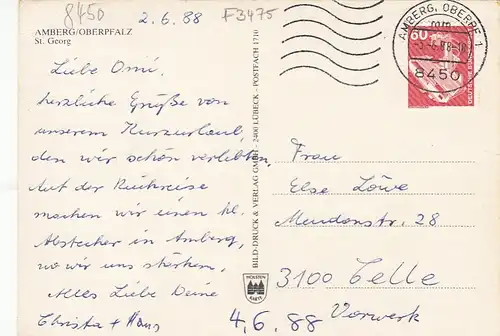 8450
2.6.88
F3475
AMBERG/OBERPFALZ
St. Georg
Liebe Omi,
herzliche Grüße von
unserem Kurzurlaub,
den wir schön verlebten.
Auf der Rückreise
machen wir einen kl.
Abstecher in Amberg,
wo wir uns stärken.
Alles Liebe Deine
Christa + Hans
BILD-DRUCK & VERLAG GMBH · 2400 LÜBECK · POSTFACH 1710
HOLSTEN
KARTE
AMBERG, OBERPF 1
8450
60
DEUTSCHE BUNDESPOST
Frau
Else Löwe
Mendenstr. 28
3100 Celle
Vorwerk
4.6.88